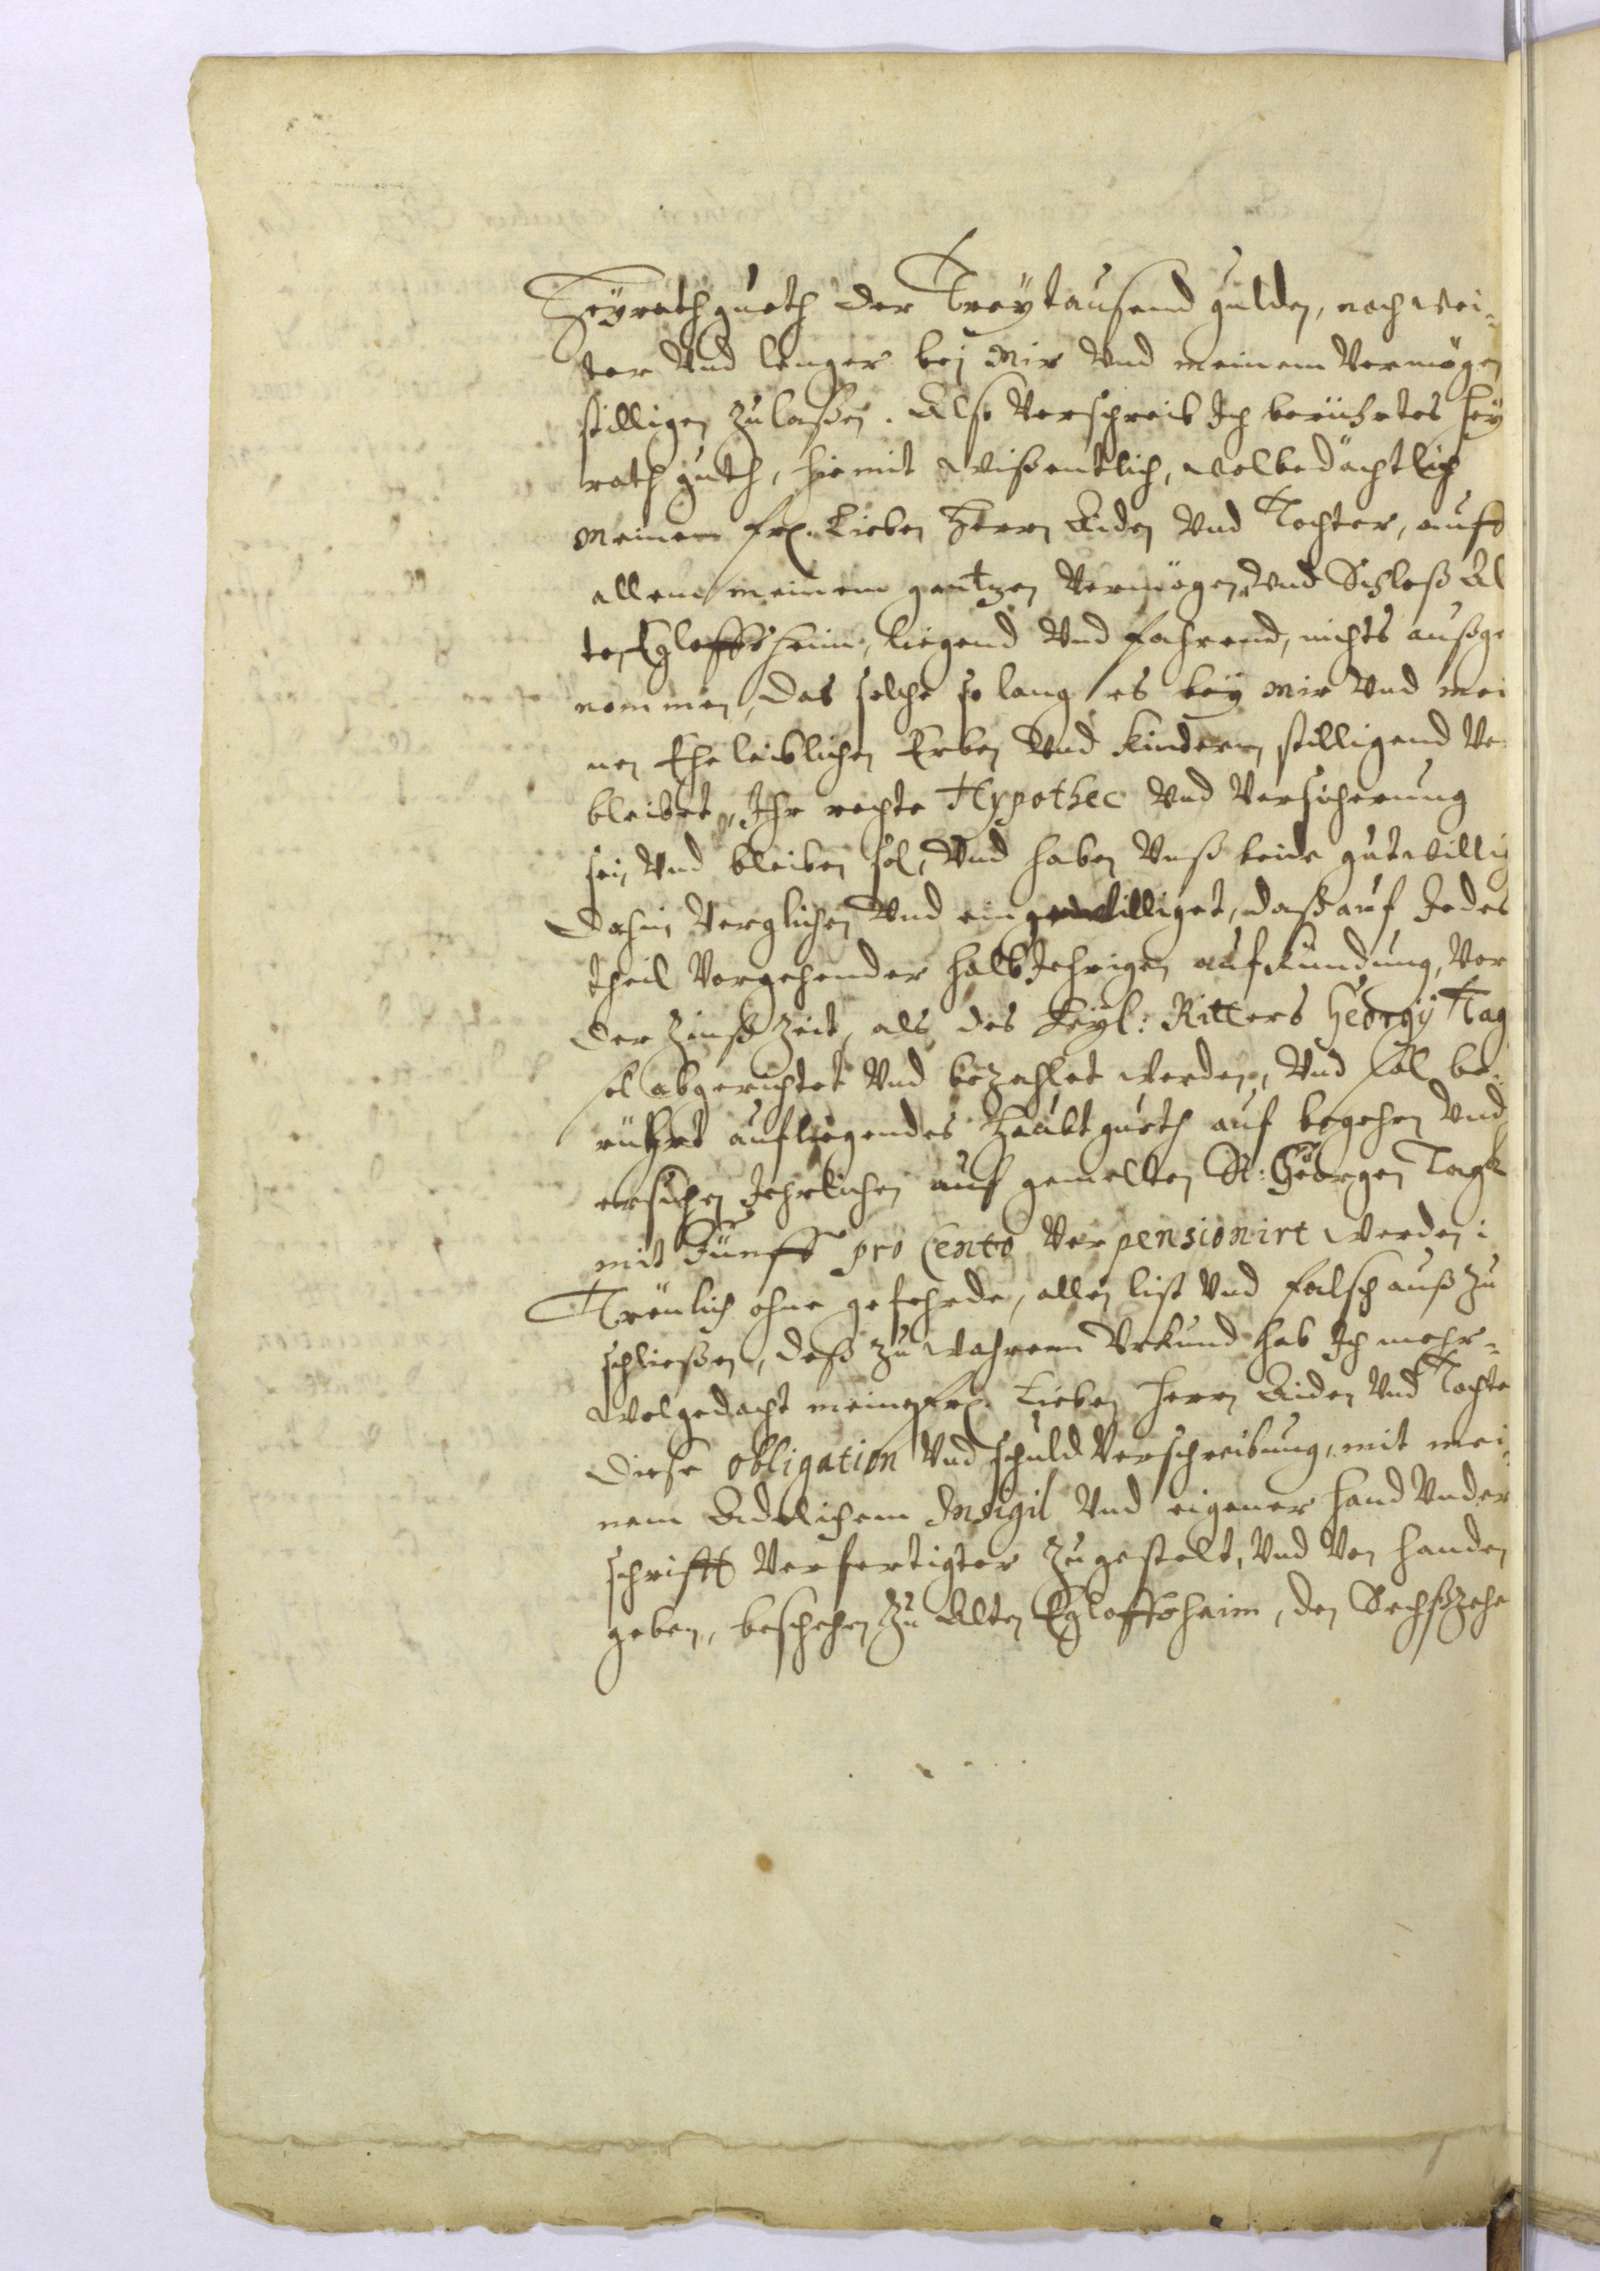 Heÿrathgueth der Dreÿtausend gulden, noch wei-
ter Vnd lenger bej Mir Vnd meinem Vermögen
stilligen Zulaßen. Also Verschreib Ich berührtes Heÿ
rathguth, hiemit wißentlich, wolbedächtlich
Meinem frl. Lieben Herrn Aiden Vnd Tochter, auff
allem meinem gantzen Vermögen Vnd Schloß Al
ten Egloffsheim, liegend Vnd fahrend, nichts außge
nommen, Das solche so lang es beÿ Mir Vnd mei
nen Eheleiblichen Erben Vnd Kindern stilligend Ver
bleibet, Ihr rechte Hypothec Vnd Versicherung
sei, Vnd bleiben sol, Vnd haben Vnß beide gutwillig
Dahin Verglichen Vnd eingewilliget, daß auf Jedes
theil Vorgehender halb Jehrigen aufkündung, Vor
der Zinßzeit, als des Heÿl: Ritters Georgÿ Tag
sol abgerichtet Vnd bezahlet werden, Vnd sol be-
rührt aufliegendes Haubtgueth auf begehen Vnd
ersuchen Jehrlichen auf gemelten St: Georgen Tagk
mit Fünff pro Cento Verpensionirt werden:
Treulich ohne gefehrde, allen list Vnd falsch auß zu
schließen, deß zu wahrem Vrkund hab Ich mehr-
wolgedacht meinen frl. Lieben Herrn Aiden Vnd Tochter
Diese Obligation Vnd schuld Verschreibung, mit mei-
nem Adelichem Insigil Vnd eigener Hand Vnder
schrifft Verfertigter Zugestelt, Vnd Von handen
geben, beschehen Zu Alten Egloffsheim, den Sechßzehe